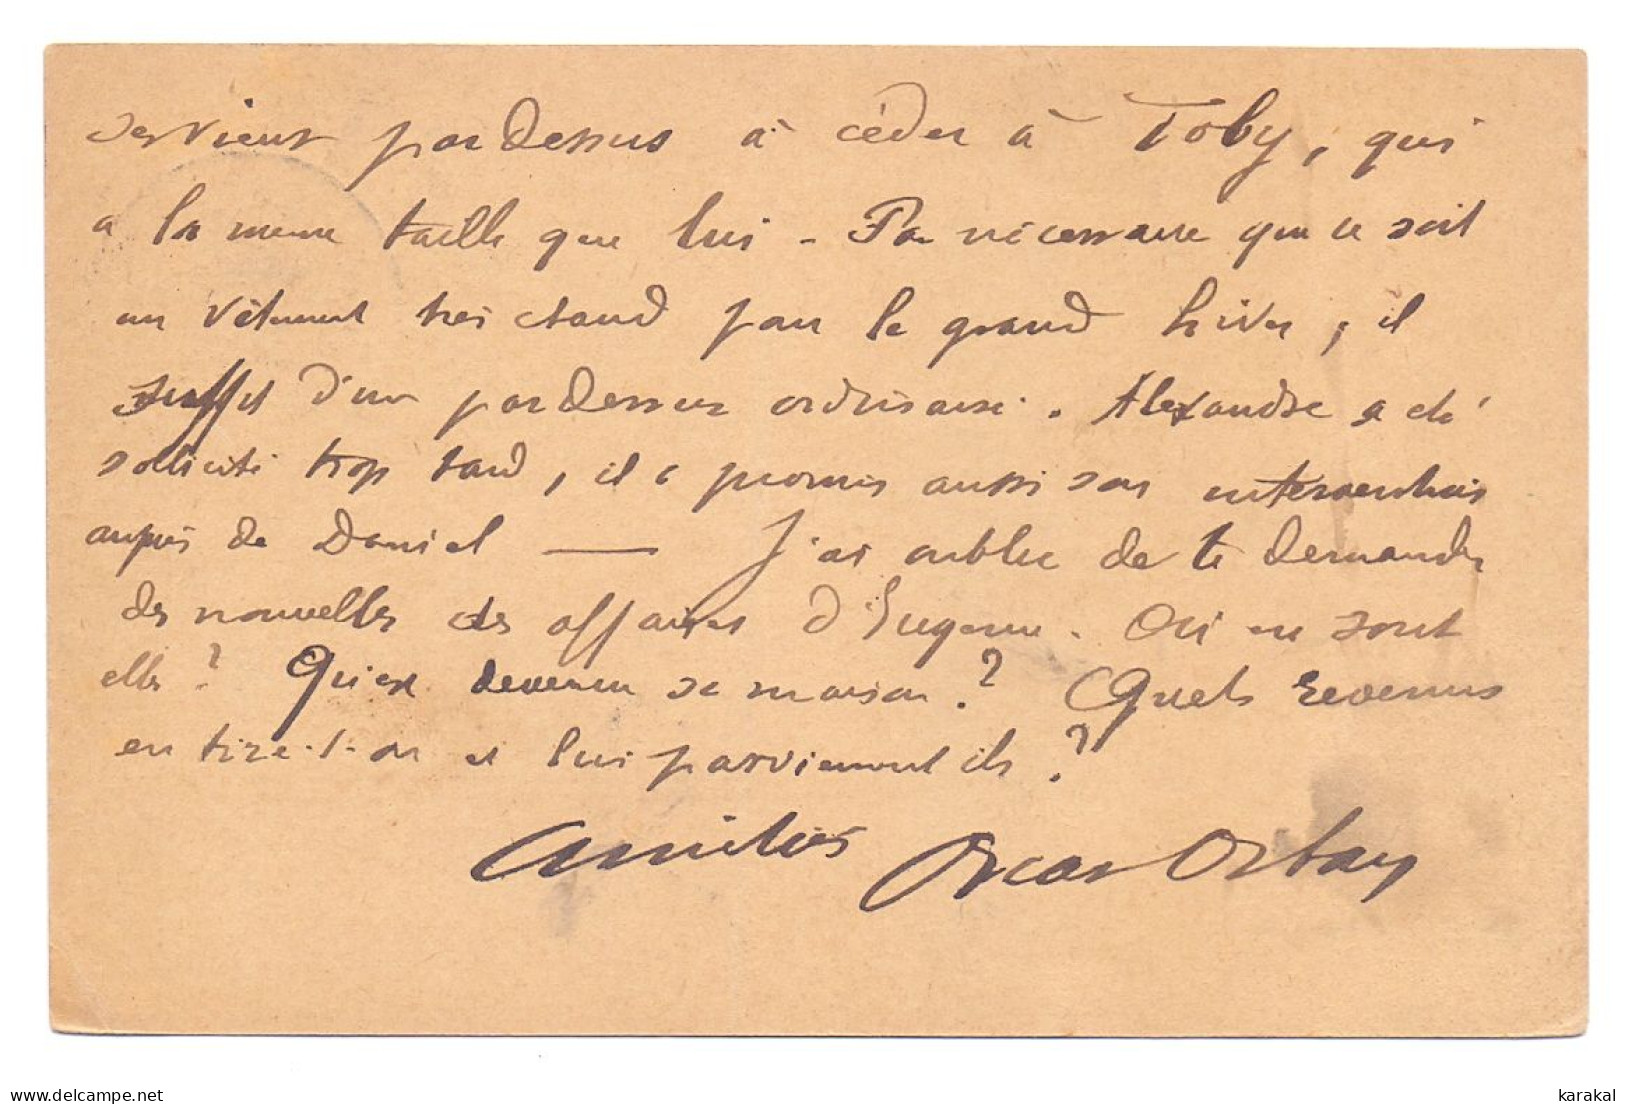 ses vieux pardessus à céder à Toby, qui
a la meme taille que lui - Pas nécessaire que ce soit
un vêtement très chaud pour le grand hiver, il
suffit d'un pardessus ordinaire. Alexandre a été
sollicité trop tard, il a promis aussi son intervention
auprès de Daniel — J'ai oublié de te demander
des nouvelles des affaires d'Eugene. Où en sont
elles ? Qu'est devenue sa maison ? Quels revenus
en tire-t-on et lui parviennent ils ?
Amitiés Oscar Orban
karakal